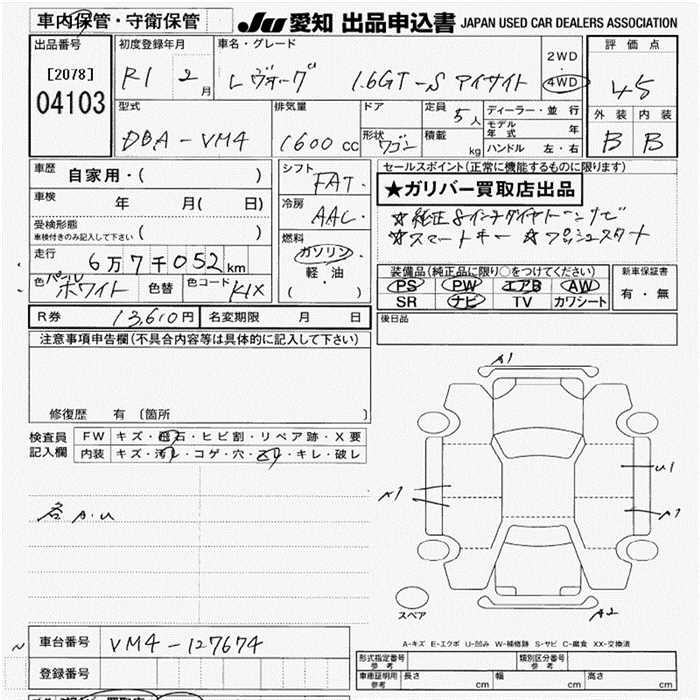 車内保管・守衛保管 JU愛知 出品申込書 JAPAN USED CAR DEALERS ASSOCIATION
出品番号 初度登録年月 車名・グレード 2WD 評価点
[2078] R1 2月 レヴォーグ 1.6GT-S アイサイト 4WD 4.5
04103 型式 排気量 ドア 定員 5人 ディーラー・並行 外装 内装
DBA-VM4 1600cc 形状 ワゴン 積載 kg モデル年式 年 B B
ハンドル 左・右
車歴 自家用・( ) シフト FAT. セールスポイント(正常に機能するものに限ります)
車検 年 月( 日) 冷房 AAC. ★ガリバー買取店出品
受検形態 ☆純正8インチダイヤトーンナビ
車検付きのみ記入して下さい( ) 燃料 ☆スマートキー ☆プッシュスタート
走行 6万7千052km ガソリン 装備品(純正品に限り○をつけてください) 新車保証書
色 パールホワイト 色替 色コード K1X 軽・油 PS PW エアB AW 有・無
( ) SR ナビ TV カワシート
R券 13,610円 名変期限 月 日 後日品
注意事項申告欄(不具合内容等は具体的に記入して下さい)
修復歴 有 〔箇所 〕
検査員記入欄 FW キズ・飛石・ヒビ割・リペア跡・X要
内装 キズ・汚れ・コゲ・穴・スレ・キレ・破レ
各A.U
A1
U1
A1
A1
スペア
A2
A-キズ E-エクボ U-凹み W-補修跡 S-サビ C-腐食 XX-交換済
車台番号 VM4-127674
登録番号
形式指定番号 参考 類別区分番号 参考
車庫証明用 参考 長さ cm 幅 cm 高さ cm